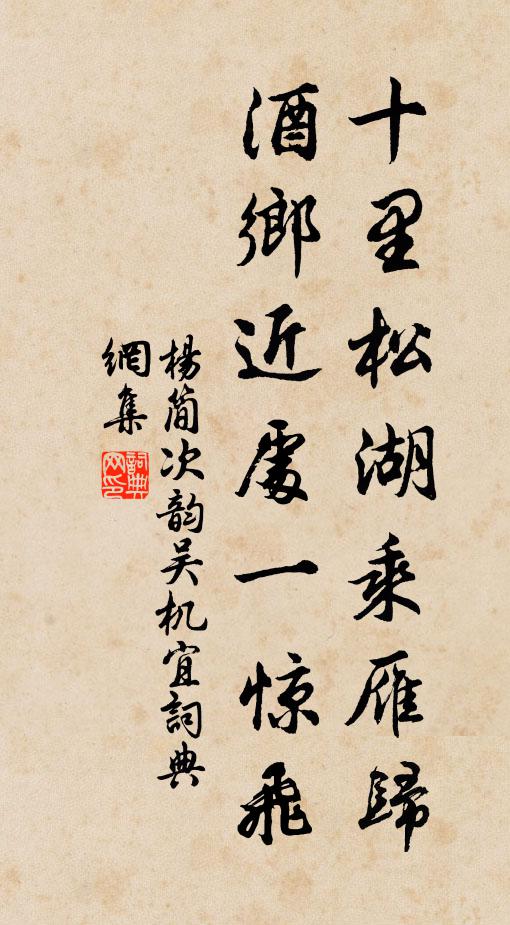 十里松湖乘雁歸
酒鄉近處一惊飛
楊简次韵吴机宜詞典
網集
詞典
网印